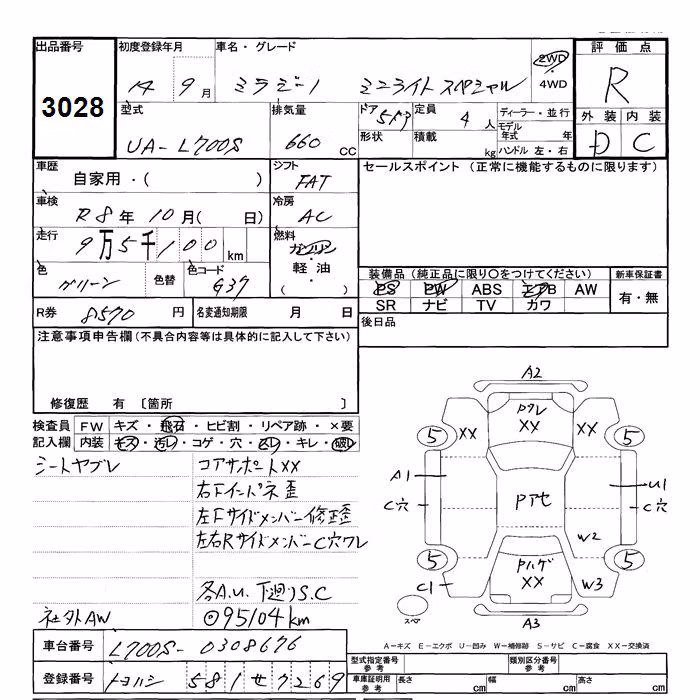 出品番号
3028
初度登録年月
14 9月
車名・グレード
ミラジーノ ミニライトスペシャル
2WD
・
4WD
評価点
R
外装 内装
D C
型式
UA-L700S
排気量
660 cc
ドア
5ドア
定員
4 人
形状
積載
kg
ディーラー・並行
モデル
年式 年
ハンドル 左・右
車歴
自家用・( )
シフト
FAT
セールスポイント (正常に機能するものに限ります)
車検
R8年 10月( 日)
冷房
AC
走行
9万5千100 km
燃料
ガソリン
・
軽油
( )
色
グリーン
色替
色コード
G37
装備品 (純正品に限り○をつけてください)
PS PW ABS エアB AW
SR ナビ TV カワ
新車保証書
有・無
R券 8570 円
名変通知期限 月 日
後日品
注意事項申告欄(不具合内容等は具体的に記入して下さい)
修復歴 有 〔箇所 〕
検査員
記入欄
FW キズ・飛石・ヒビ割・リペア跡・×要
内装 キズ・汚レ・コゲ・穴・スレ・キレ・破レ
シートヤブレ
コアサポートXX
右Fインパネ歪
左Fサイドメンバー修正歪
左右RサイドメンバーC穴ワレ
各A.U. 下廻りS.C
社外AW
◎95104km
A2
Pワレ
XX
XX
XX
5
5
A1
U1
C穴
C穴
Pアセ
W2
5
5
Pハゲ
XX
C1
W3
スペア
A3
A=キズ E=エクボ U=凹み W=補修跡 S=サビ C=腐食 XX=交換済
車台番号 L700S-0308676
登録番号 トヨハシ 581せ7269
型式指定番号
参考
類別区分番号
参考
車庫証明用
参考
長さ cm
幅 cm
高さ cm